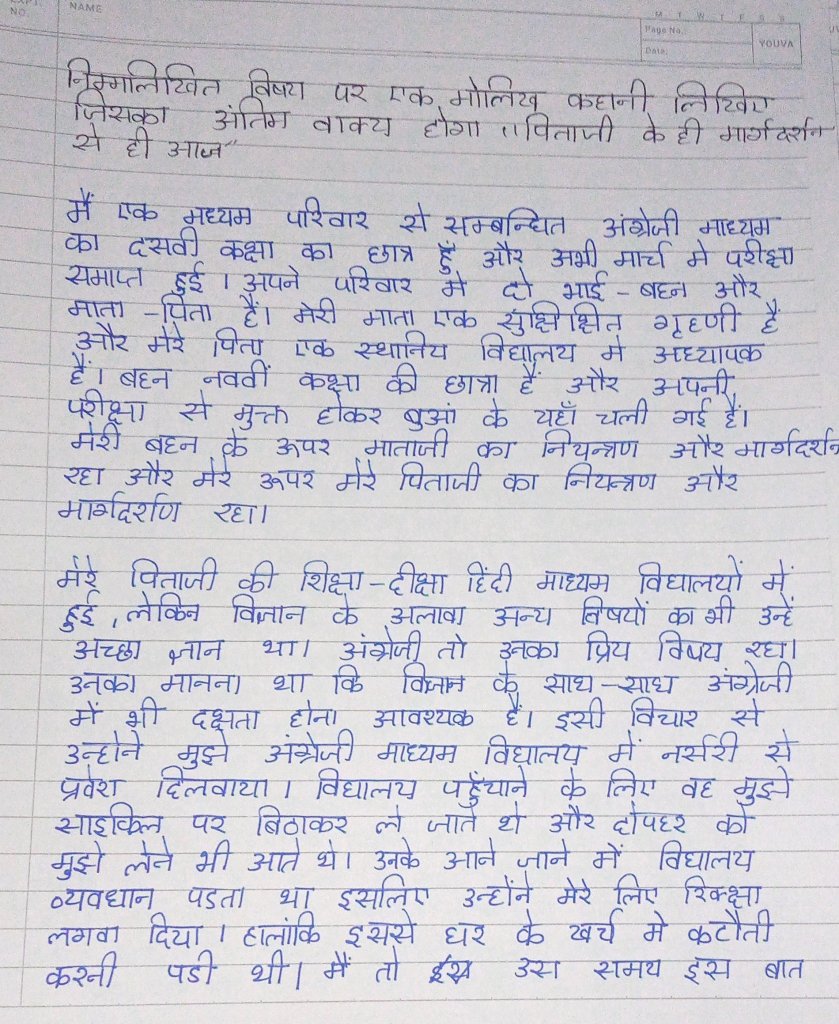 NO.
NAME
M T W T F S S
Page No.:
Date:
YOUVA
निम्नलिखित विषय पर एक मोलिख कहानी लिखिए
जिसका अंतिम वाक्य होगा "पिताजी के ही मार्गदर्शन
से ही आज"
मैं एक मध्यम परिवार से सम्बन्धित अंग्रेजी माध्यम
का दसवी कक्षा का छात्र हूँ और अभी मार्च मे परीक्षा
समाप्त हुई । अपने परिवार मे दो भाई - बहन और
माता - पिता हैं। मेरी माता एक सुक्षिक्षित गृहणी हैं
और मेरे पिता एक स्थानिय विद्यालय मे अध्यापक
हैं। बहन नववीं कक्षा की छात्रा हैं और अपनी
परीक्षा से मुक्त होकर बुआं के यहाँ चली गई हैं।
मेरी बहन के ऊपर माताजी का नियन्त्रण और मार्गदर्शन
रहा और मेरे ऊपर मेरे पिताजी का नियन्त्रण और
मार्गदर्शण रहा।
मेरे पिताजी की शिक्षा - दीक्षा हिंदी माध्यम विद्यालयों में
हुई , लेकिन विज्ञान के अलावा अन्य विषयों का भी उन्हें
अच्छा ज्ञान था। अंग्रेजी तो उनका प्रिय विषय रहा।
उनका मानना था कि विज्ञान के साथ - साथ अंग्रेजी
में भी दक्षता होना आवश्यक हैं। इसी विचार से
उन्होने मुझे अंग्रेजी माध्यम विद्यालय में नर्सरी से
प्रवेश दिलवाया । विद्यालय पहुँचाने के लिए वह मुझे
साइकिल पर बिठाकर ले जाते थे और दोपहर को
मुझे लेने भी आते थे। उनके आने जाने में विद्यालय
व्यवधान पडता था इसलिए उन्होंने मेरे लिए रिक्क्षा
लगवा दिया । हालांकि इससे घर के खर्च मे कटौती
करनी पडी थी। मैं तो उस समय इस बात